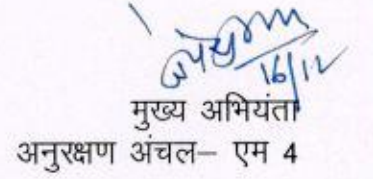 16/12
मुख्य अभियंता
अनुरक्षण अंचल– एम 4